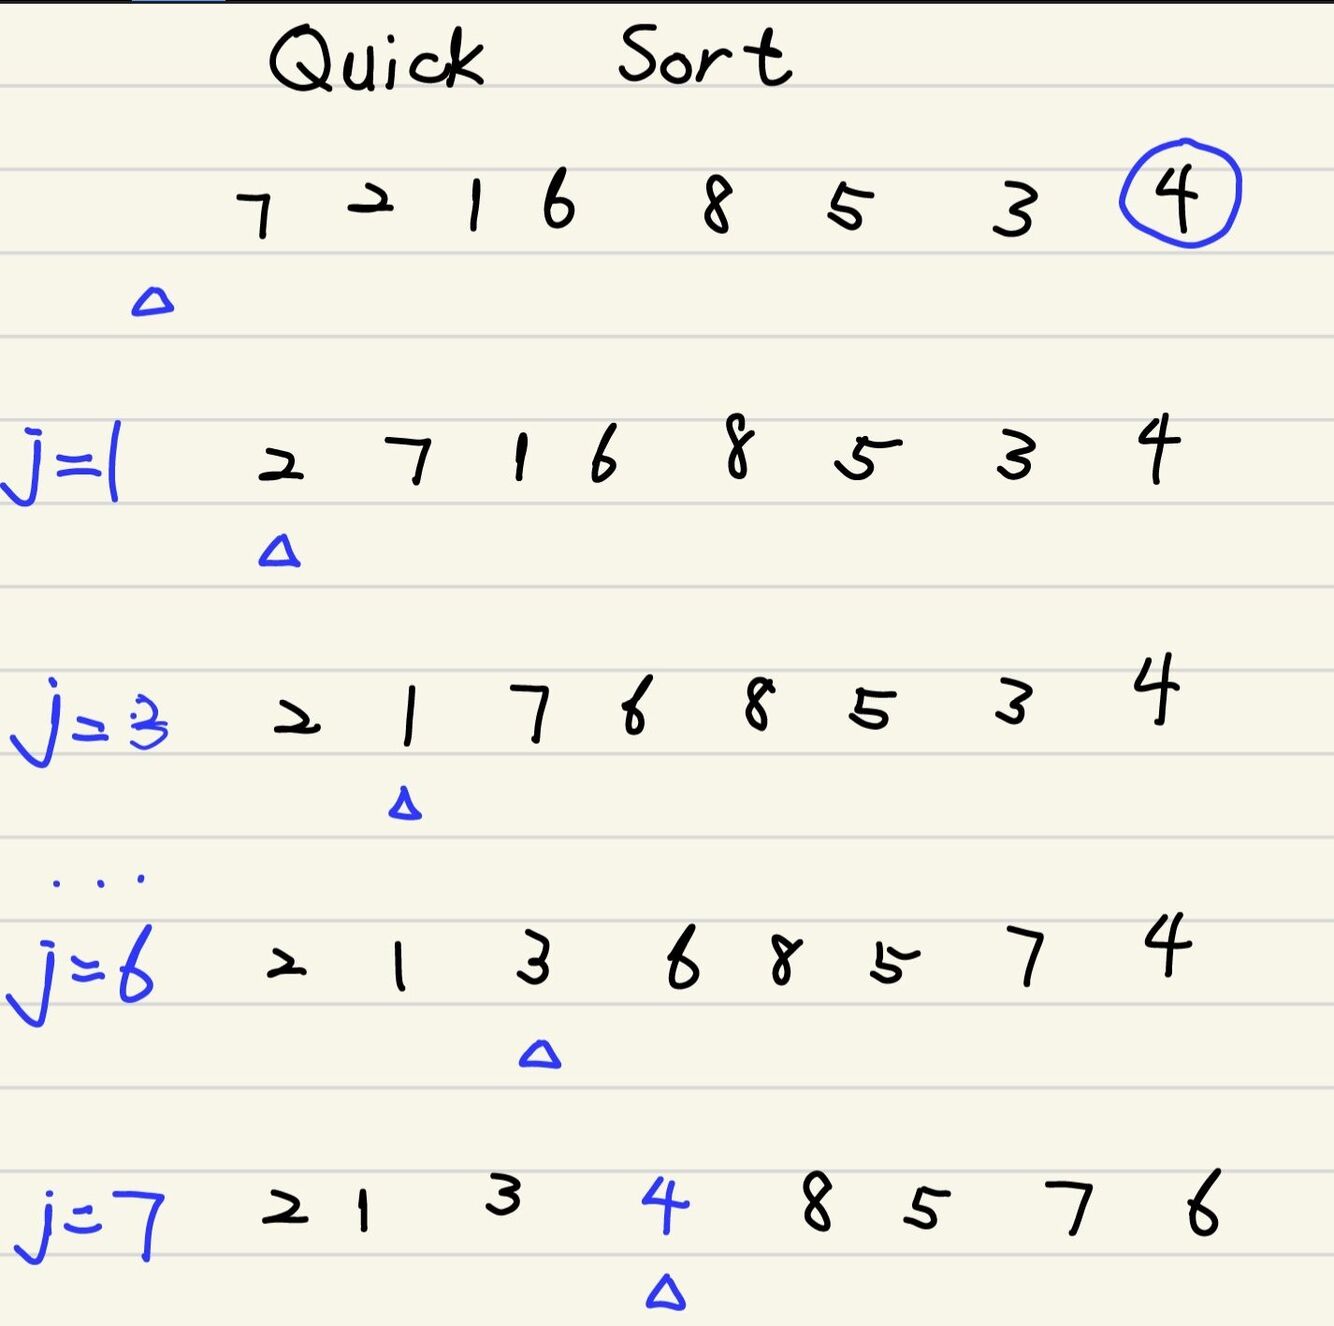 Quick Sort
7 2 1 6 8 5 3 4
Δ
j=1 2 7 1 6 8 5 3 4
Δ
j=3 2 1 7 6 8 5 3 4
Δ
...
j=6 2 1 3 6 8 5 7 4
Δ
j=7 2 1 3 4 8 5 7 6
Δ